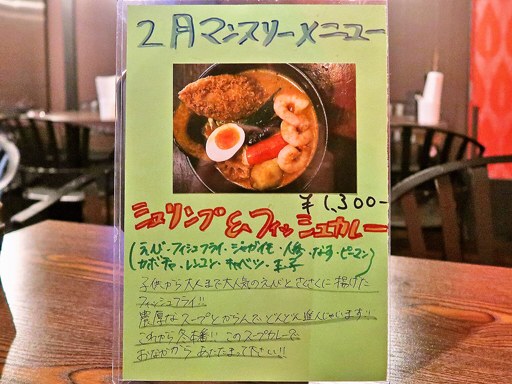 2月マンスリーメニュー
¥1,300-
シュリンプ&フィッシュカレー
(えび・フィシュフライ・ジャガイモ・人参・なす・ピーマン
カボチャ・レンコン・キャベツ・玉子)
子供から大人まで大人気のえびとさくさくに揚げた
フィッシュフライ!!
濃厚なスープとからんで、どんどん進んじゃいます!!
これから冬本番!! このスープカレーで
おなかから あたたまって下さい!!